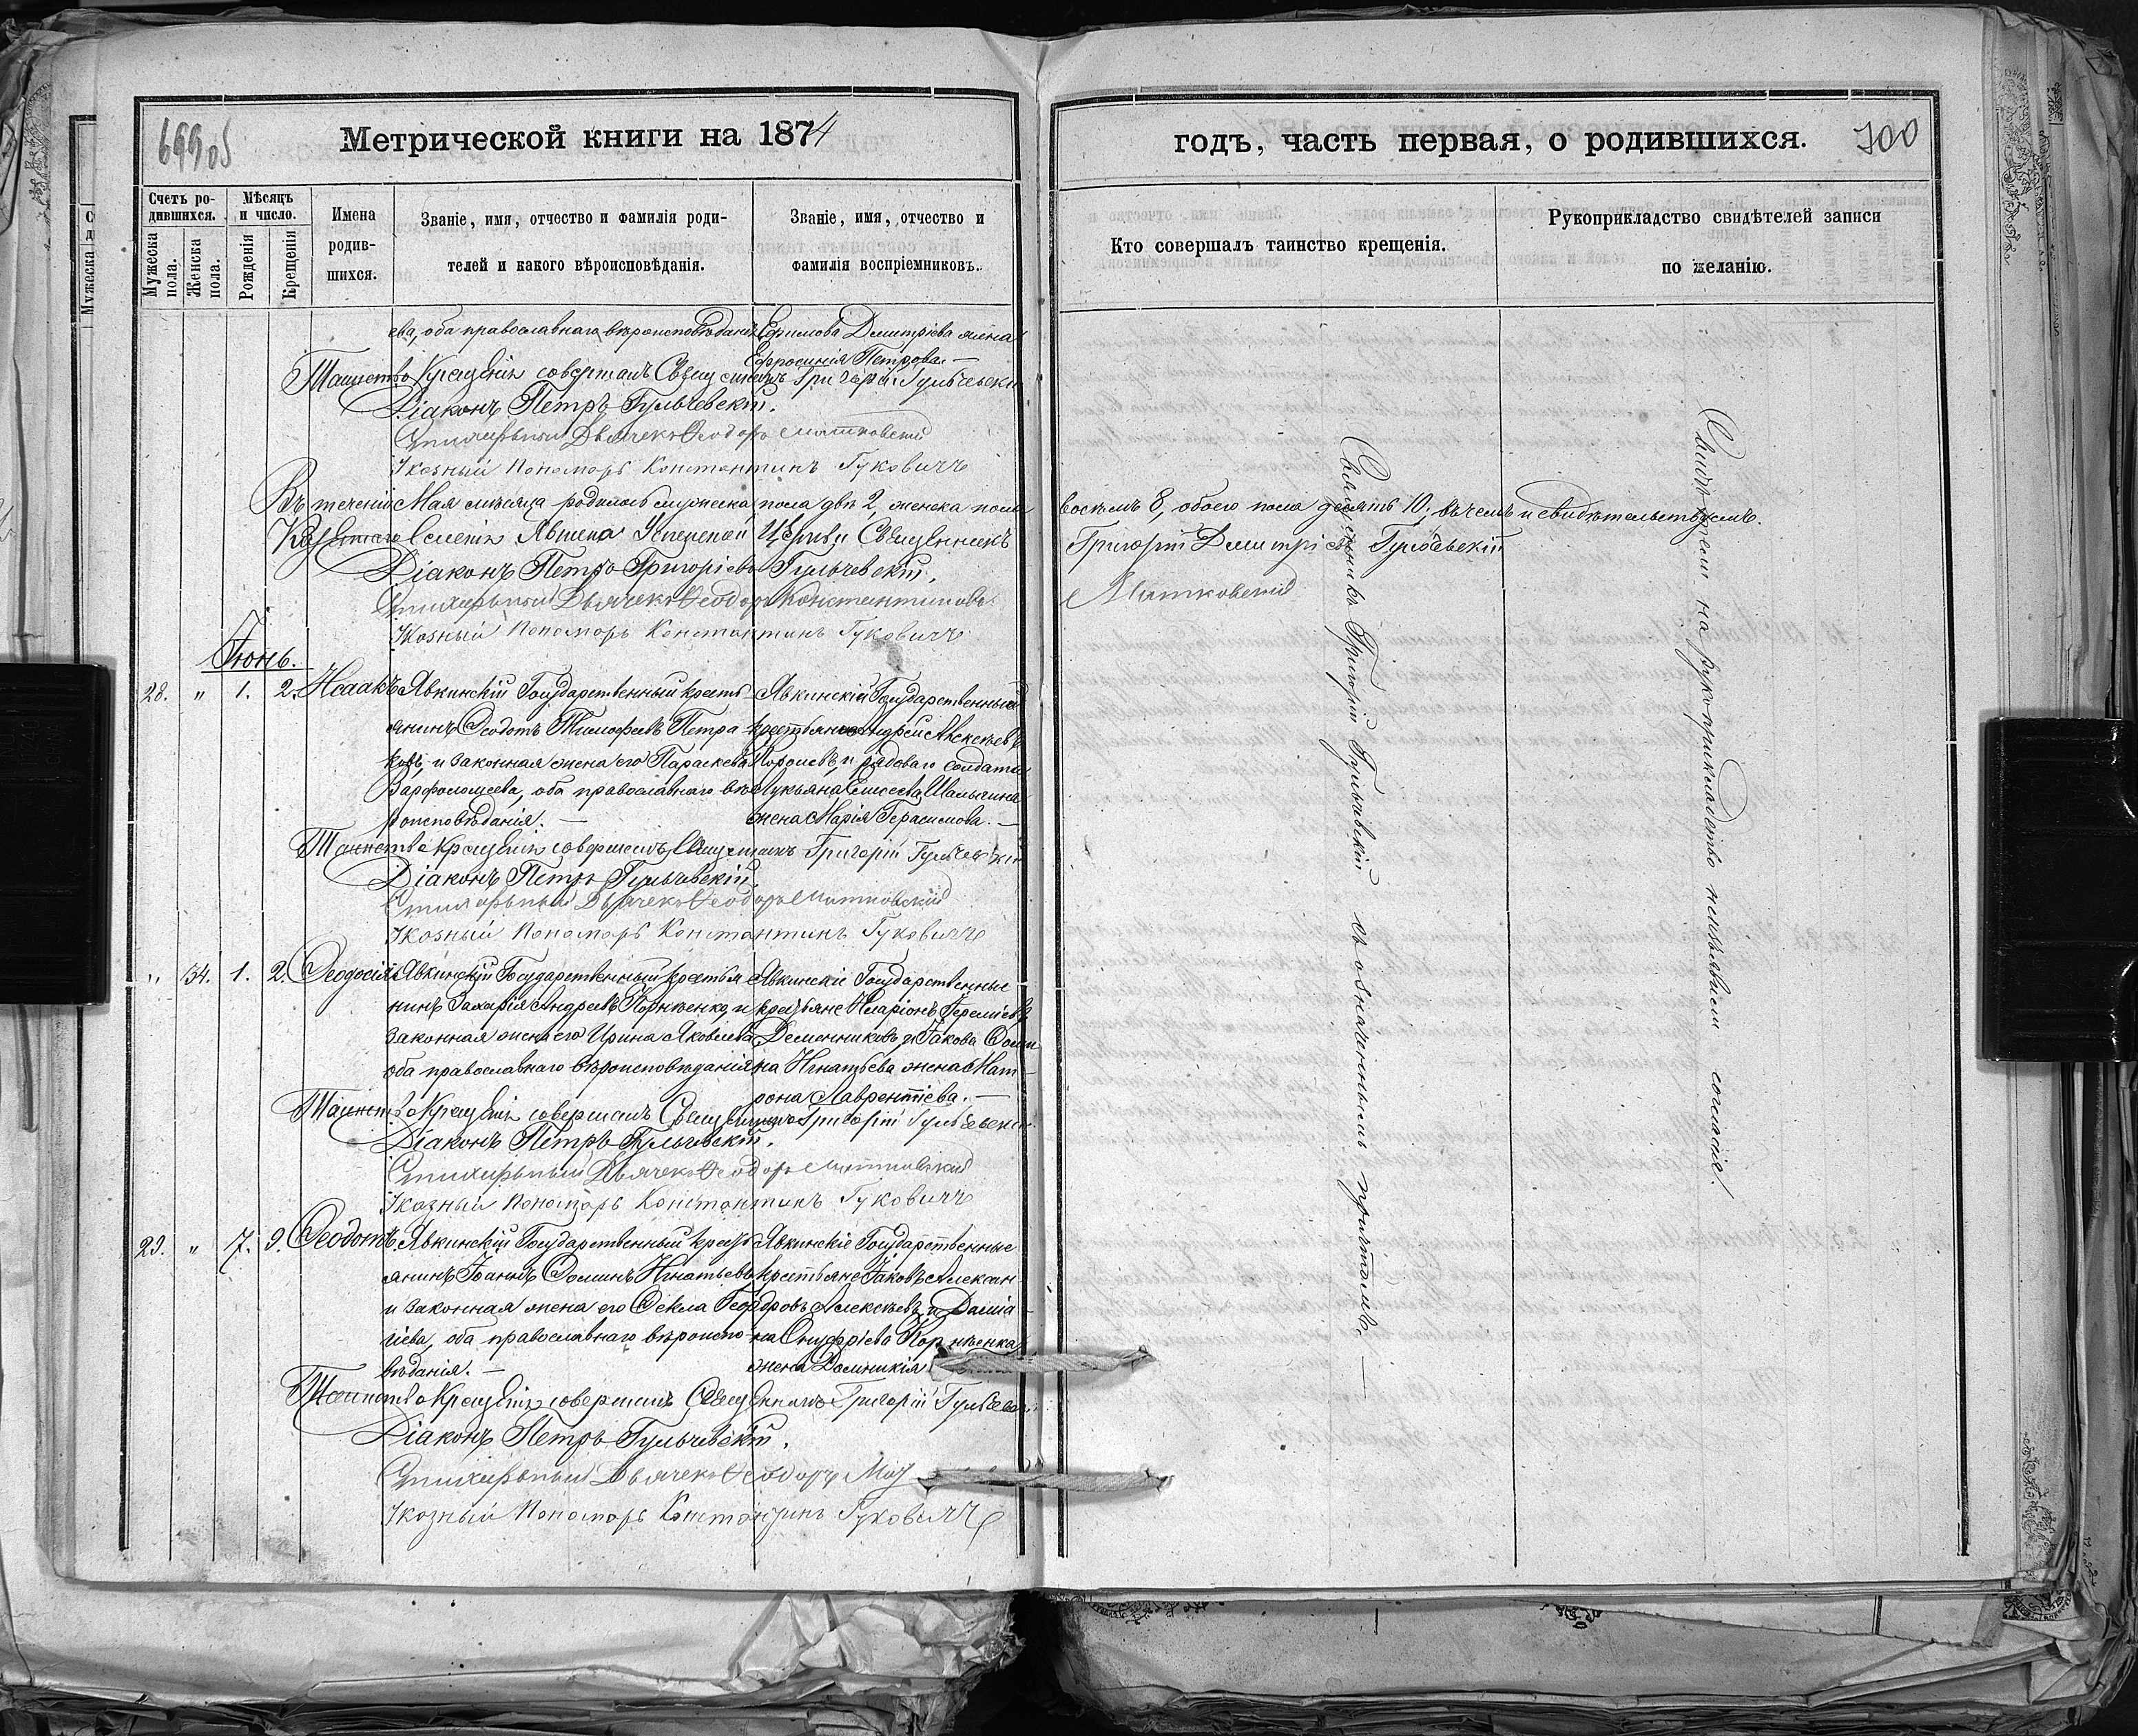 699 об
Метрической книги на 1874
Счетъ ро-
дившихся.
Мужеска пола.
Женска пола.
Мѣсяцъ
и число.
Рожденія
Крещенія
Имена
родив-
шихся.
Званіе, имя, отчество и фамилія роди-
телей и какого вѣроисповѣданія.
Званіе, имя, отчество и
фамилія воспріемниковъ.
ева, оба православнаго вѣроисповѣданія
Ефимова Дмитріева жена
Евфросинія Петрова. —
Таинство Крещенія совершалъ Священникъ Григорій Гульчевскій
Діаконъ Петръ Гульчевскій.
Стихарный Дьячекъ Ѳеодоръ Мятковскій
Указный Пономарь Константинъ Гуковичъ
Въ теченіи Мая мѣсяца родилось мужеска пола два 2, женска пола
Селенія Явкина Успенской Церкви Священникъ
Діаконъ Петръ Григоріевъ Гульчевскій.
Стихарный Дьячекъ Ѳеодоръ Константиновъ
Указный Пономарь Константинъ Гуковичъ
Іюнь.
28. " 1. 2. Исаакъ
Явкинскій Государственный кресть-
янинъ Ѳеодотъ Тимофеевъ Петра-
ковъ, и законная жена его Параскева
Варфоломеева, оба православнаго вѣ-
роисповѣданія. —
Явкинскій Государственный
крестьянинъ Андрей Алексѣевъ
Королевъ, и рядоваго солдата
Лукьяна Елисеева Шалыгина
жена Марія Герасимова. —
Таинство Крещенія совершалъ Священникъ Григорій Гульчевскій
Діаконъ Петръ Гульчевскій.
Стихарный Дьячекъ Ѳеодоръ Мятковскій
Указный Пономарь Константинъ Гуковичъ
" 34. 1. 2. Ѳеодосія
Явкинскій Государственный крестья
нинъ Захарія Андреевъ Корнѣенко, и
законная жена его Ирина Яковлева
оба православнаго вѣроисповѣданія
Явкинскіе Государственные
крестьяне Иларіонъ Іереміевъ
Деменниковъ, и Іакова Ѳоми
на Игнатьева жена Мат-
рона Лаврентіева. —
Таинство Крещенія совершалъ Священникъ Григорій Гульчевскій
Діаконъ Петръ Гульчевскій.
Стихарный Дьячекъ Ѳеодоръ Мятковскій
Указный Пономарь Константинъ Гуковичъ
29. " 7. 9. Ѳеодотъ
Явкинскій Государственный кресть
янинъ Іоаннъ Ѳоминъ Игнатьевъ
и законная жена его Ѳекла Геор-
гіева, оба православнаго вѣроиспо-
вѣданія. —
Явкинскіе Государственные
крестьяне Іаковъ Алексан-
дровъ Алексѣевъ, и Даміа-
на Онуфріева Корнѣенка
жена Домникія
Таинство Крещенія совершалъ Священникъ Григорій Гульчевскій
Діаконъ Петръ Гульчевскій.
Стихарный Дьячекъ Ѳеодоръ
Указный Пономарь Константинъ Гуковичъ
годъ, часть первая, о родившихся.
700
Кто совершалъ таинство крещенія.
Рукоприкладство свидѣтелей записи
по желанію.
восемь 8, обоего пола десять 10, въ чемъ и свидѣтельствуемъ.
Григорій Дмитріевъ Гульчевскій
Мятковскій
Священникъ Григорій Гульчевскій съ означеннымъ причтомъ. —
Свидѣтели на рукоприкладство неизъявили согласія.